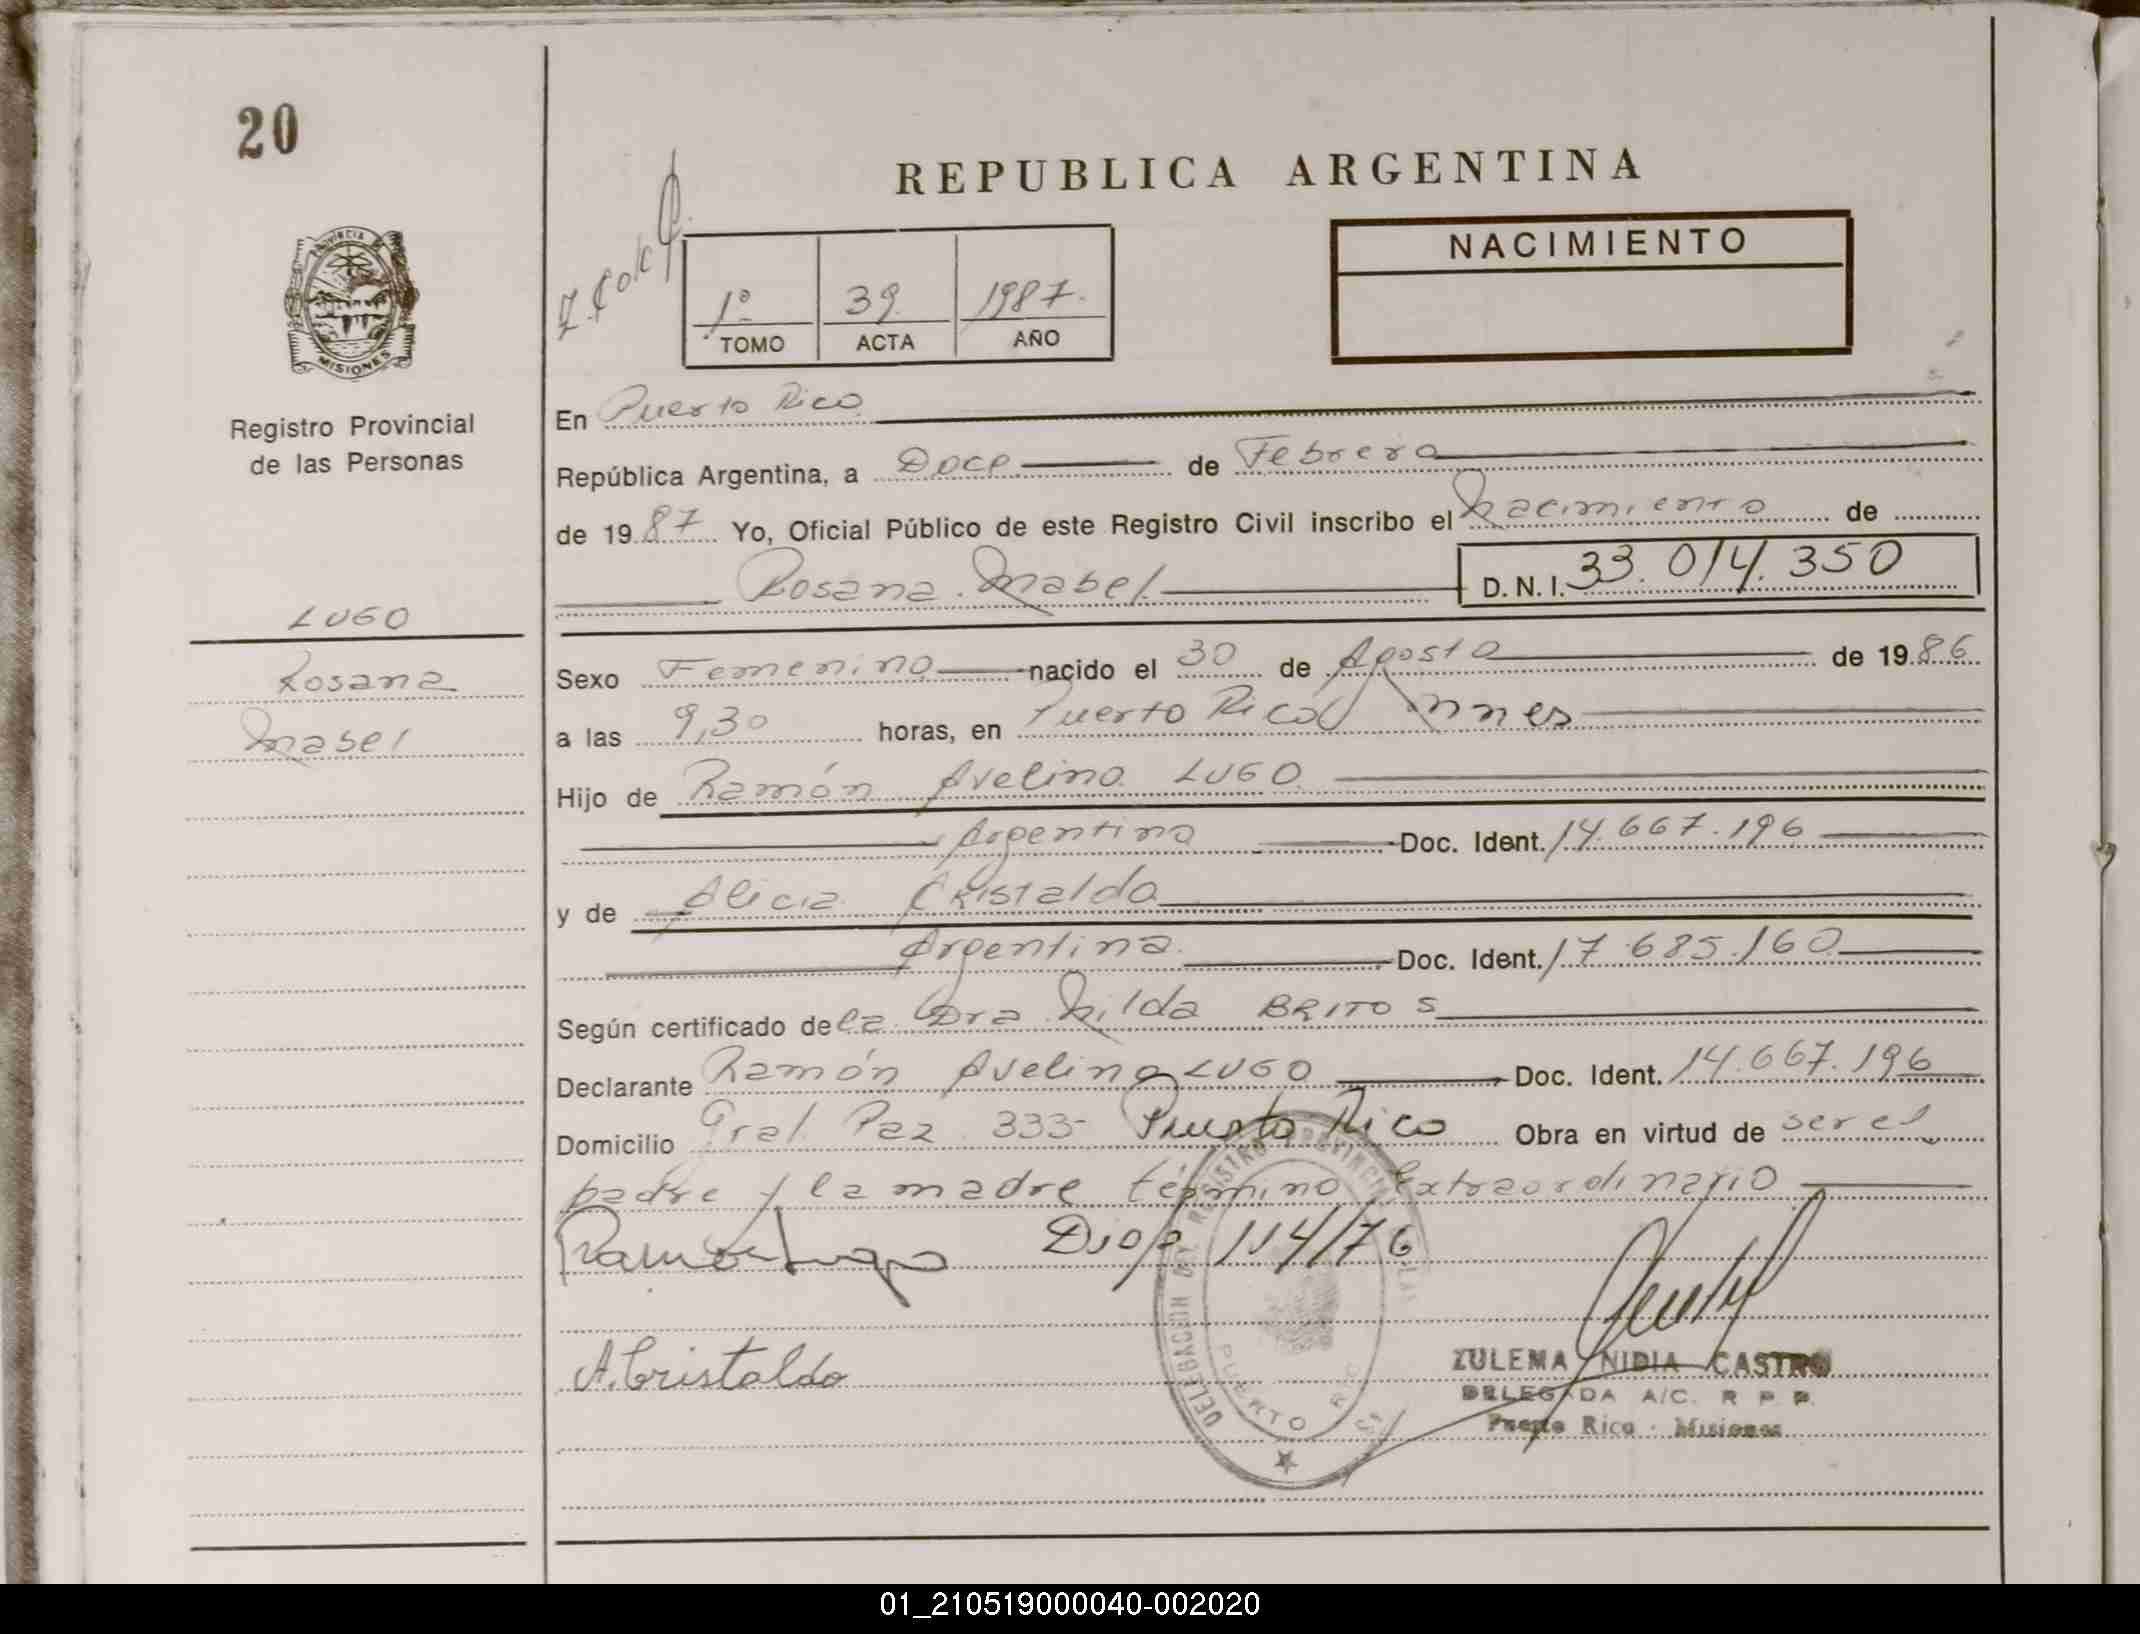 20
REPUBLICA ARGENTINA
NACIMIENTO
1º 39 1987.
TOMO ACTA AÑO
PROVINCIA DE
MISIONES
Registro Provincial
de las Personas
LUGO
Rosana
Mabel
En Puerto Rico
República Argentina, a Doce de Febrero
de 1987 Yo, Oficial Público de este Registro Civil inscribo el Nacimiento de
Rosana Mabel D. N. I. 33.014.350
Sexo Femenino nacido el 30 de Agosto de 1986
a las 9,30 horas, en Puerto Rico Mnes
Hijo de Ramón Avelino LUGO
Argentino Doc. Ident. 14.667.196
y de Alicia Cristaldo
Argentina Doc. Ident. 17.685.160
Según certificado de la Dra Nilda BRITOS
Declarante Ramón Avelino LUGO Doc. Ident. 14.667.196
Domicilio Gral. Paz 333- Puerto Rico Obra en virtud de ser el
padre y la madre término Extraordinario
Ramon Lugo Disp 114/76
A. Cristaldo
DELEGACION DEL REGISTRO PROVINCIAL DE LAS
PUERTO RICO
ZULEMA NIDIA CASTRO
DELEGADA A/C. R. P. P.
Puerto Rico - Misiones
01_210519000040-002020